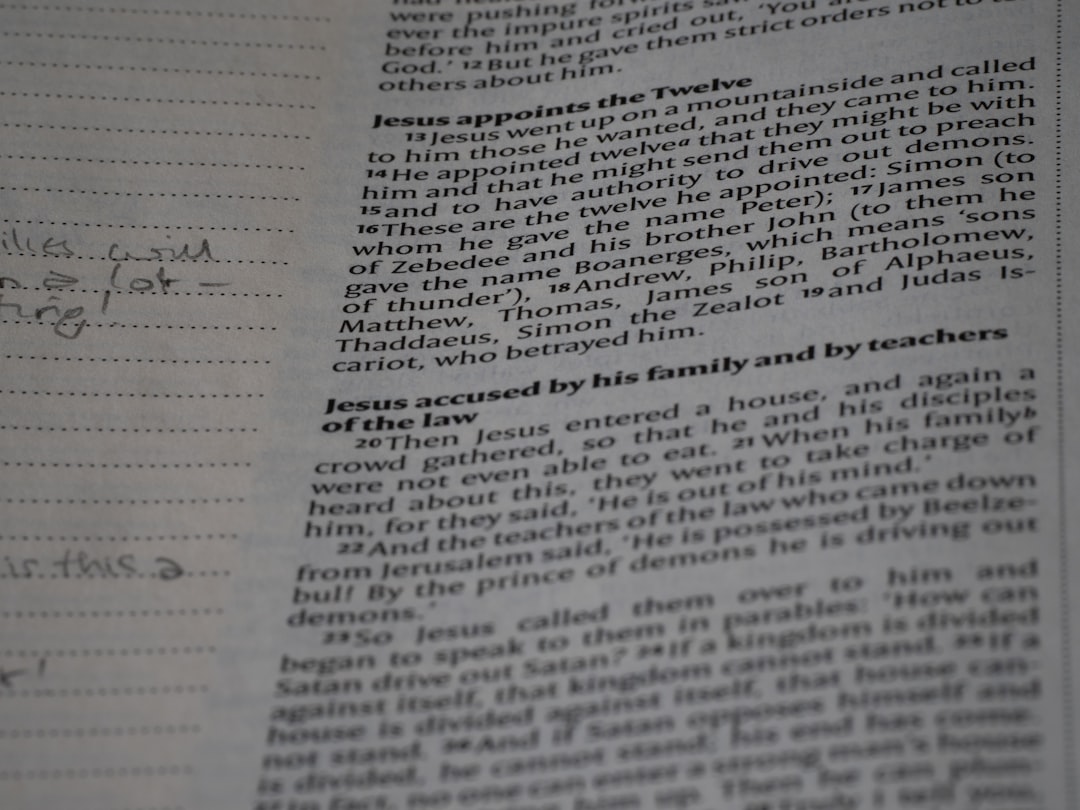 were pushing
ever the impure spirits
before him and cried out, 'You
God.' 12 But he gave them strict orders not to
others about him.
Jesus appoints the Twelve
13 Jesus went up on a mountainside and called
to him those he wanted, and they came to him.
14 He appointed twelvea that they might be with
him and that he might send them out to preach
15 and to have authority to drive out demons.
16 These are the twelve he appointed: Simon (to
whom he gave the name Peter); 17 James son
of Zebedee and his brother John (to them he
gave the name Boanerges, which means 'sons
of thunder'), 18 Andrew, Philip, Bartholomew,
Matthew, Thomas, James son of Alphaeus,
Thaddaeus, Simon the Zealot 19 and Judas Is-
cariot, who betrayed him.
Jesus accused by his family and by teachers
of the law
20 Then Jesus entered a house, and again a
crowd gathered, so that he and his disciples
were not even able to eat. 21 When his familyb
heard about this, they went to take charge of
him, for they said, 'He is out of his mind.'
22 And the teachers of the law who came down
from Jerusalem said, 'He is possessed by Beelze-
bul! By the prince of demons he is driving out
demons.'
23 So Jesus called them over to him and
began to speak to them in parables: 'How can
Satan drive out Satan? 24 If a kingdom is divided
against itself, that kingdom cannot stand. 25 If a
house is divided against itself, that house can-
not stand. 26 And if Satan opposes himself and
is divided, he cannot stand; his end has come.
27 In fact, no one can enter a strong man's house
him up. Then he can
will
a lot –
is this a